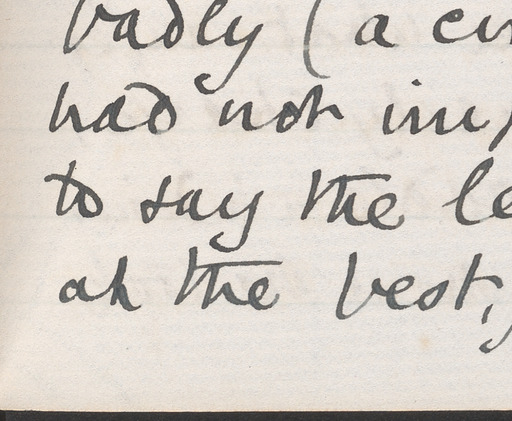 badly (a
had not
to say the
at the best,